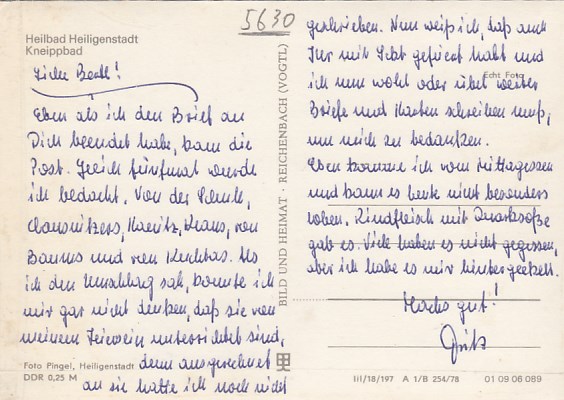 Heilbad Heiligenstadt
Kneippbad
5630
Lieber Berth!
Eben als ich den Brief an
Dich beendet habe, kam die
Post. Gleich fünfmal wurde
ich bedacht. Von der Schule,
Clausnitzers, Klaus, von
Baums und von. Als
ich den Umschlag sah, konnte ich
mir gar nicht denken, daß sie von
meinem Hiersein unterrichtet sind,
denn ausgerechnet
an sie hatte ich noch nicht
geschrieben. Nun weiß ich, daß auch
Ihr mit Sekt gefeiert habt und
ich nun wohl oder übel weiter
Briefe und Karten schreiben muß,
um mich zu bedanken.
Eben komme ich vom Mittagessen
und kann es heute nicht besonders
loben. Rindfleisch mit Quarksoße
gab es. Viele haben es nicht gegessen,
aber ich habe es mir hintergeekelt.
Machs gut!
Götz
Echt Foto
BILD UND HEIMAT · REICHENBACH (VOGTL)
Foto Pingel, Heiligenstadt
DDR 0,25 M
III/18/197 A 1/B 254/78 01 09 06 089